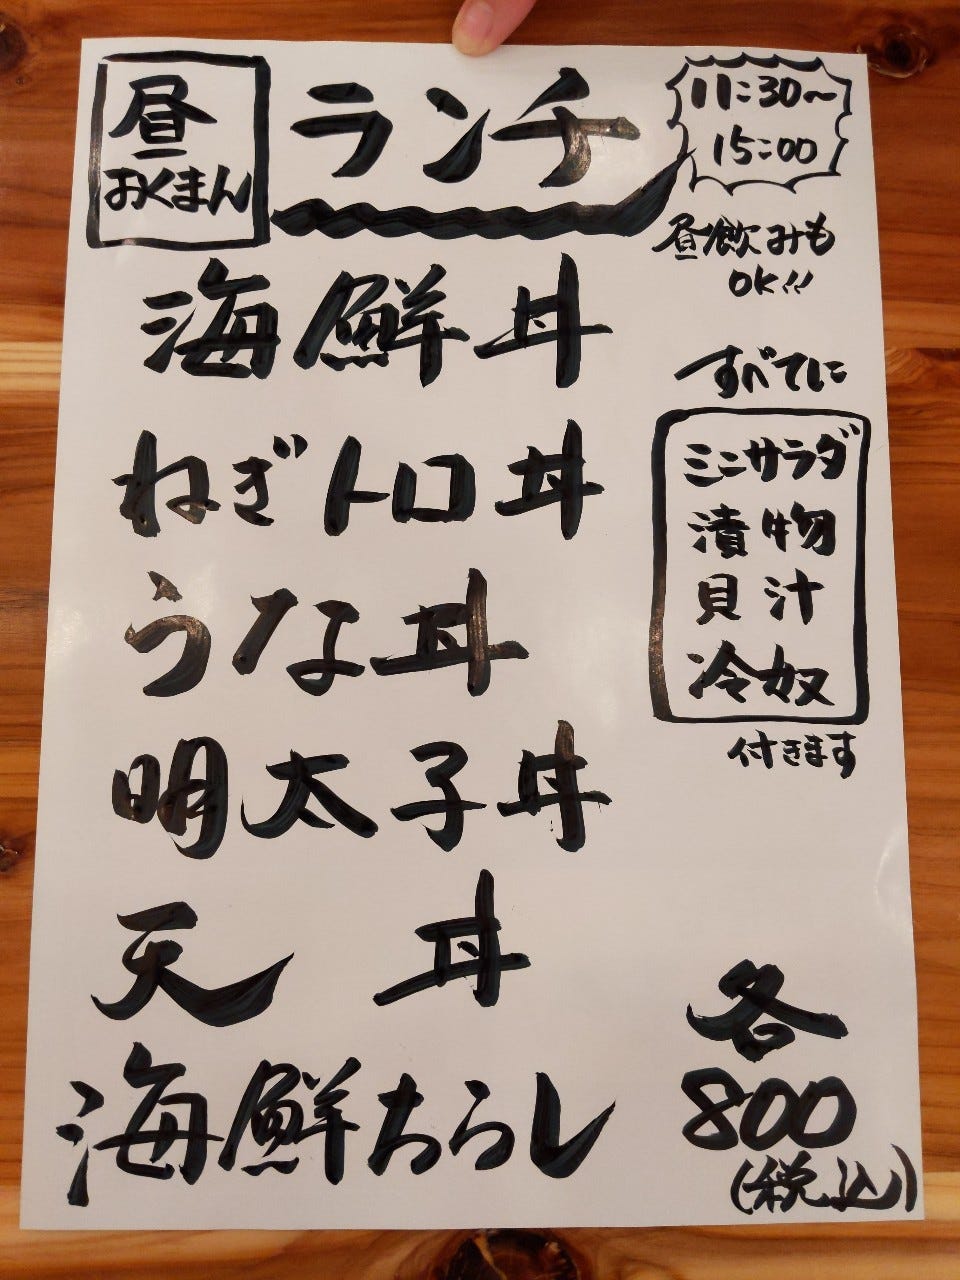 昼
おくまん
ランチ
11:30〜
15:00
昼飲みも
OK!!
海鮮丼
ねぎトロ丼
うな丼
明太子丼
天丼
海鮮ちらし
すべてに
ミニサラダ
漬物
貝汁
冷奴
付きます
各
800
(税込)